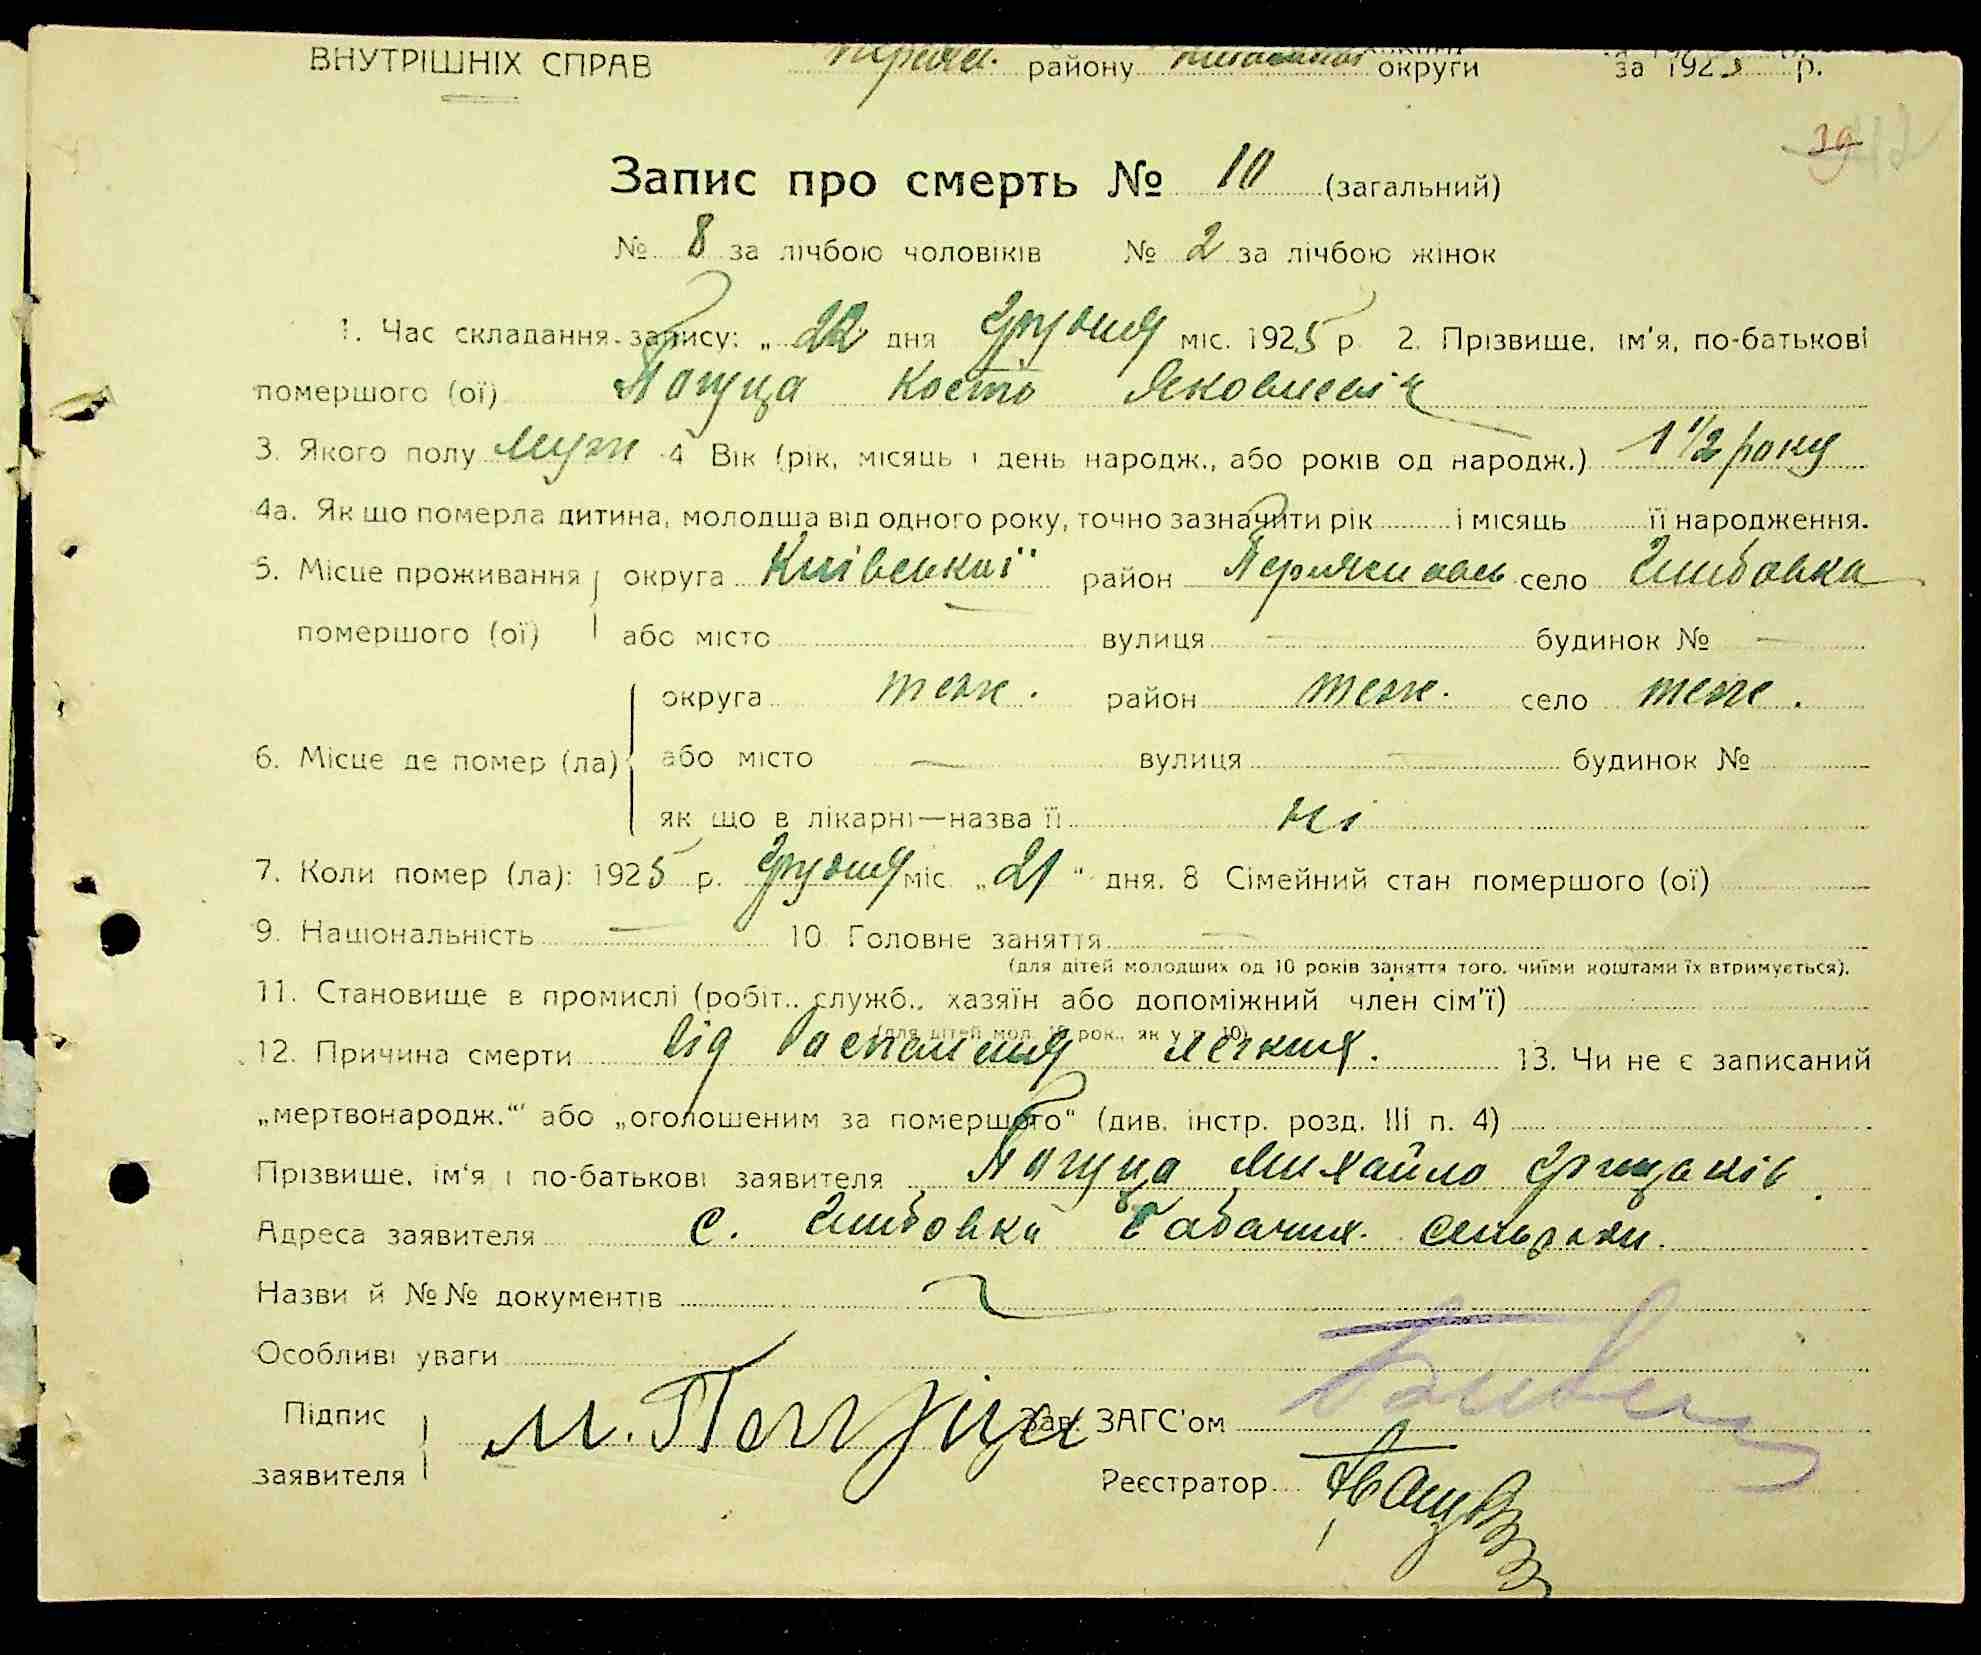 ВНУТРІШНІХ СПРАВ району округи за 1925 р.
39
Запис про смерть № 10 (загальний)
№ 8 за лічбою чоловіків № 2 за лічбою жінок
1. Час складання запису: „22 дня Грудня міс. 1925 р. 2. Прізвище, ім'я, по-батькові
помершого (ої) Погуца Кость Яковлевіч
3. Якого полу муж 4 Вік (рік, місяць і день народж., або років од народж.) 1 1/2 року
4а. Якщо померла дитина, молодша від одного року, точно зазначити рік і місяць її народження.
5. Місце проживання округа Київської район село Глибовка
помершого (ої) або місто — вулиця — будинок № —
округа теж. район теж. село теж.
6. Місце де помер (ла) або місто — вулиця — будинок №
як що в лікарні—назва її ні
7. Коли помер (ла): 1925 р. Грудня міс. „21“ дня. 8 Сімейний стан помершого (ої)
9. Національність — 10. Головне заняття —
(для дітей молодших од 10 років заняття того, чиїми коштами їх втримується).
11. Становище в промислі (робіт., служб., хазяїн або допоміжний член сім'ї)
(для дітей мол. 10 рок., як у п. 10)
12. Причина смерти від Воспаления легких. 13. Чи не є записаний
„мертвонародж.“ або „оголошеним за помершого“ (див. інстр. розд. III п. 4)
Прізвище, ім'я і по-батькові заявителя Погуца Михайло
Адреса заявителя с. Глибовка сельради.
Назви й №№ документів
Особливі уваги
Підпис заявителя М. Погуца Зав. ЗАГС'ом
Реєстратор